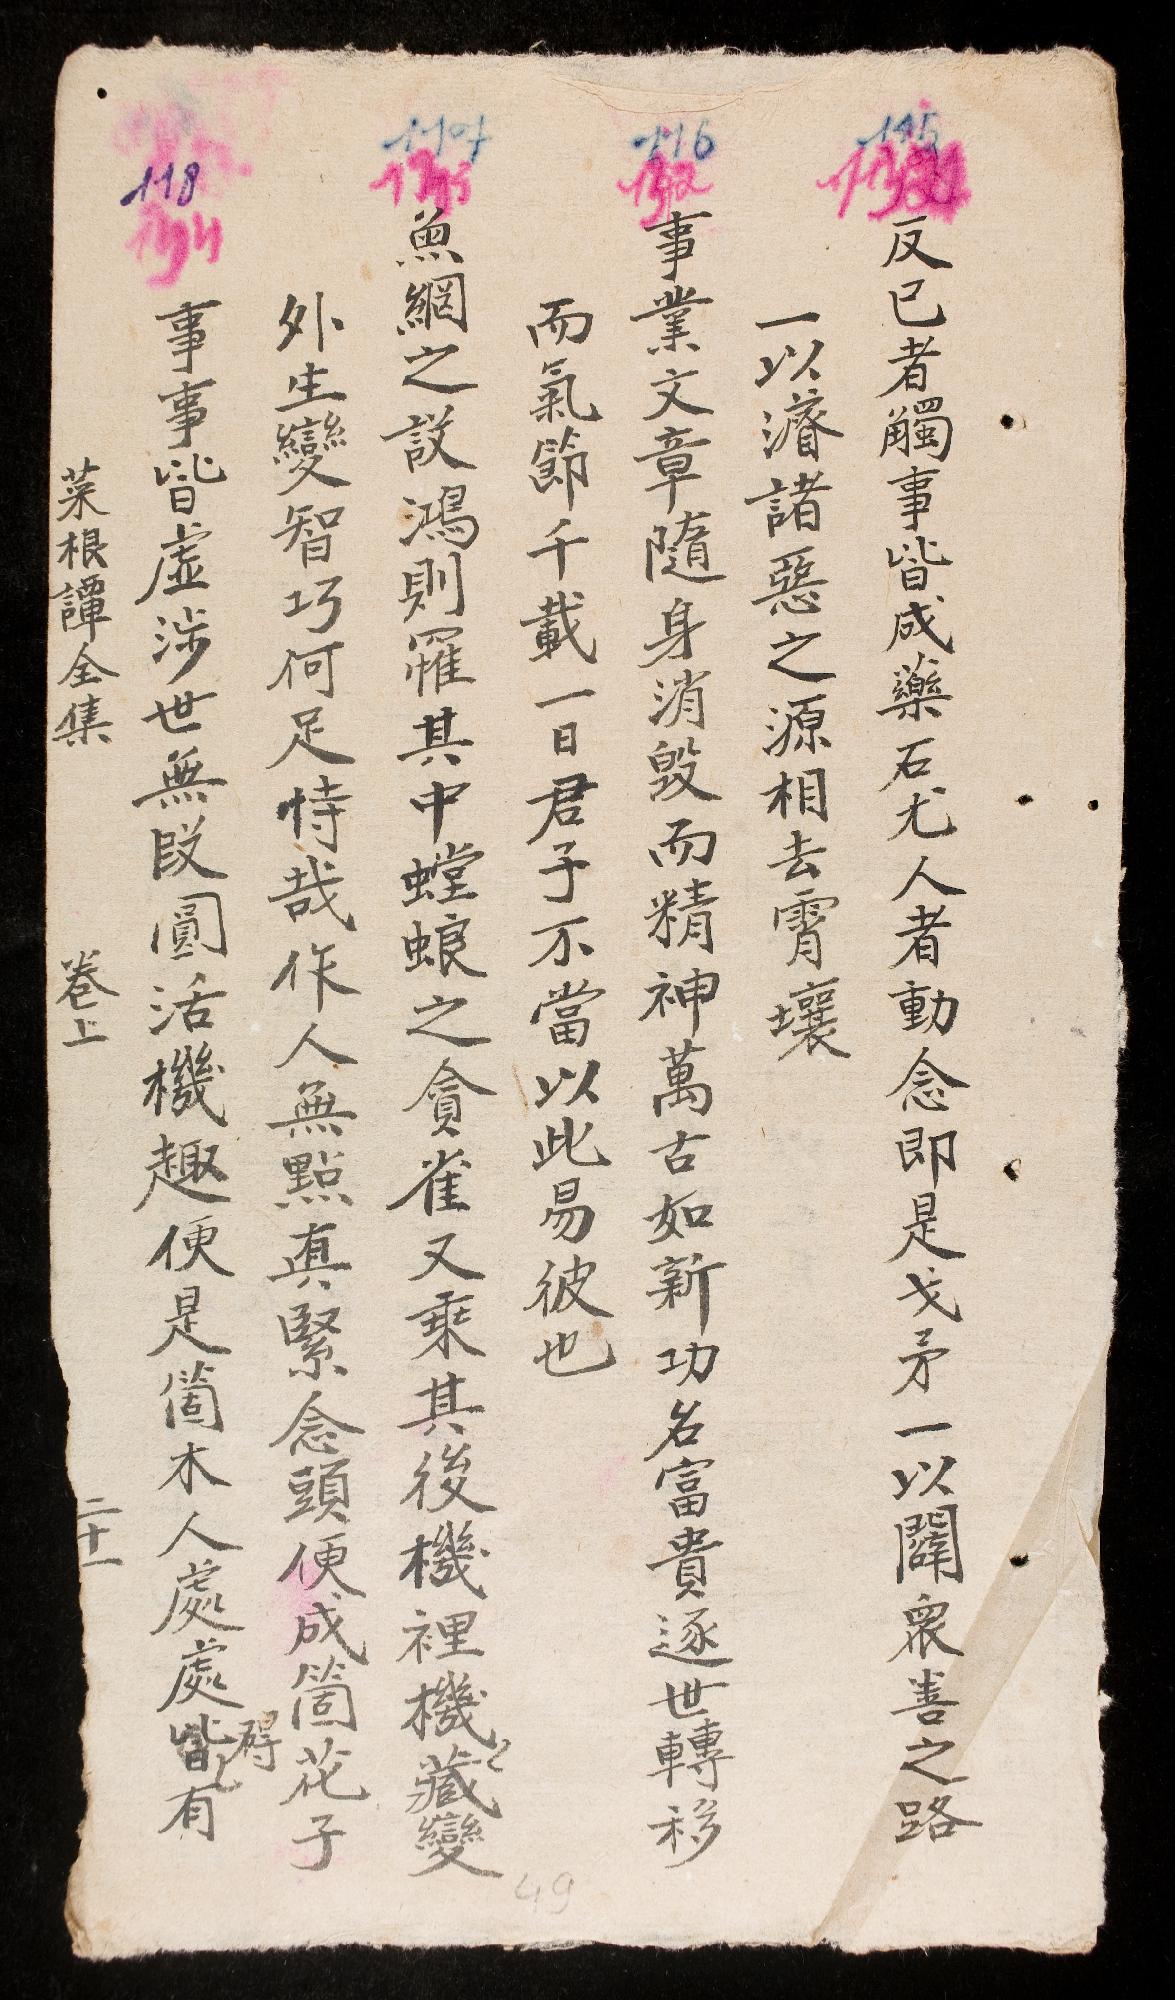 115
反已者觸事皆成藥石尤人者動念即是戈矛一以闢衆善之路
一以濬諸惡之源相去霄壤
116
事業文章隨身消毀而精神萬古如新功名富貴逐世轉移
而氣節千載一日君子不當以此易彼也
魚網之設鴻則罹其中螳蜋之貪雀又乘其後機裡機藏變
外生變智巧何足恃哉作人無點眞緊念頭便成箇花子
118
事事皆虛涉世無段圓活機趣便是箇木人處處皆有
碍
菜根譚全集
卷上
二十一
49